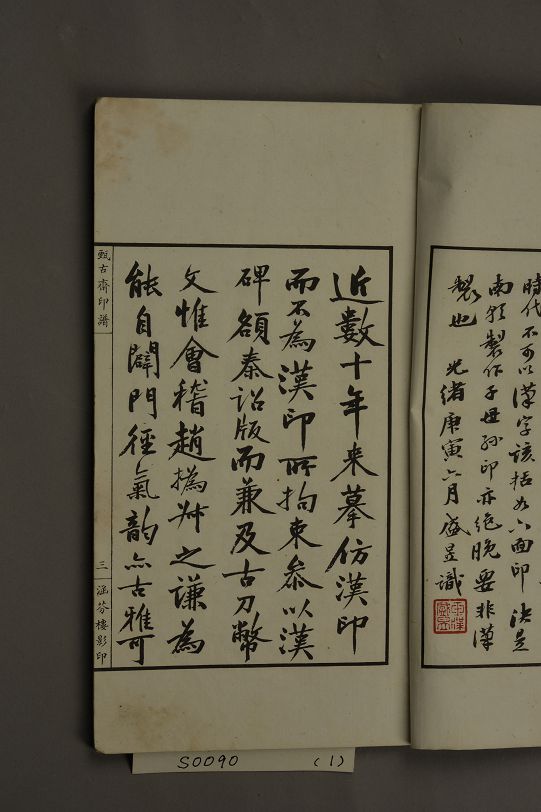 時代不可以漢字該括如六面印決是
南朝製作子母孫印亦絕晚要非漢
製也　光緒庚寅六月盛昱識
近數十年來摹仿漢印
而不為漢印所拘束參以漢
碑額秦詔版而兼及古刀幣
文惟會稽趙撝叔之謙為
能自闢門徑氣韵亦古雅可
甄古齋印譜
三
涵芬樓影印
S0090 (1)